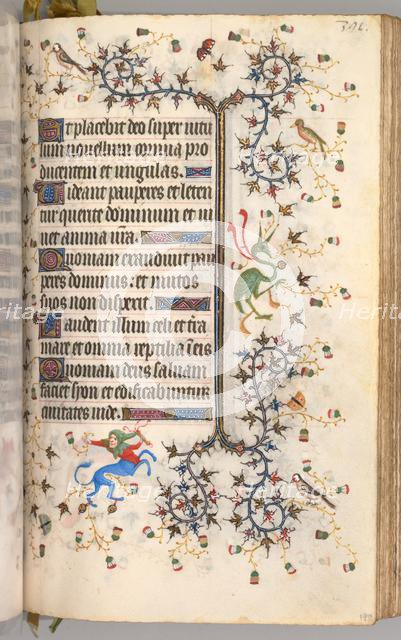 396.
Et placebit deo super vitu
lum novellum cornua pro
ducentem et ungulas.
Videant pauperes et leten
tur querite dominum et vi
vet anima vestra.
Quoniam exaudivit pau
peres dominus: et vinctos
suos non despexit.
Laudent illum celi et terra
mare et omnia reptilia in eis
Quoniam deus salvam
faciet syon et edificabuntur
civitates iude.
Heritage
Heritage